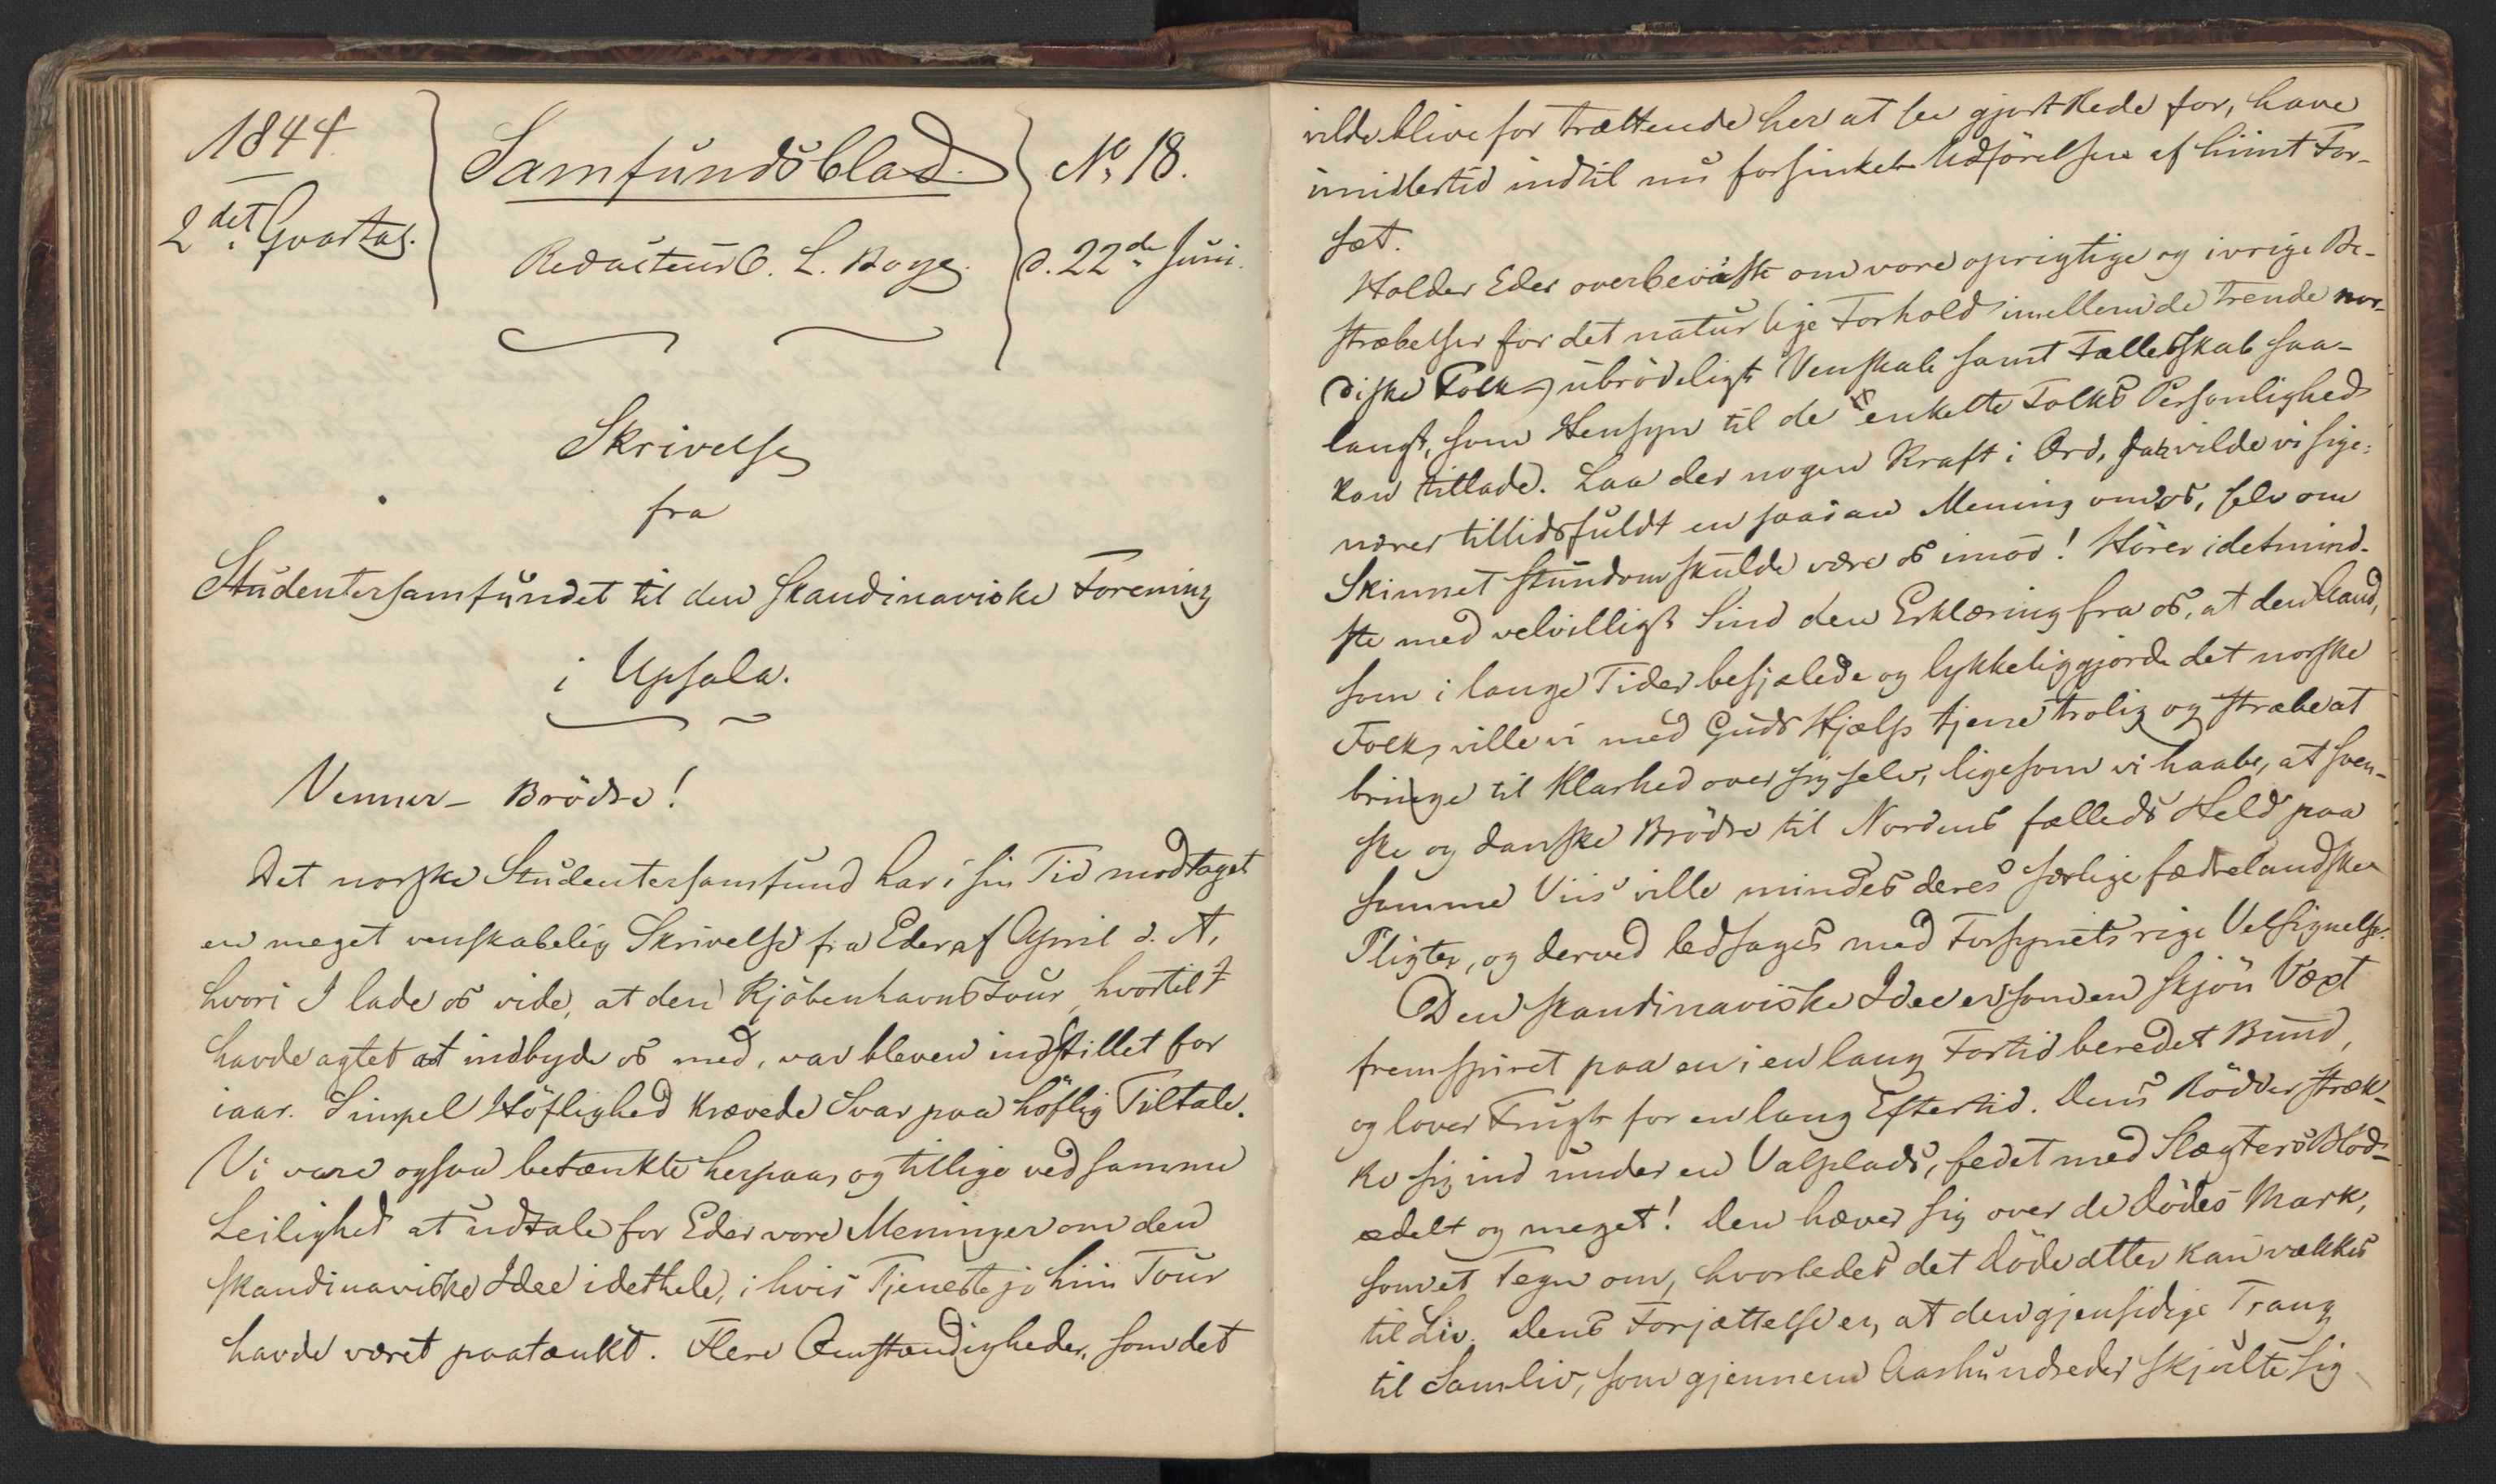 1844.
2det Qvartal.
Samfundsblad.
Redacteur O. L. Bang.
No. 18.
d. 22de Juni.
Skrivelse
fra
Studentersamfundet til den skandinaviske Forening
i Upsala.
Venner – Brödre!
Det norske Studentersamfund har i sin Tid modtaget
en meget venskabelig Skrivelse fra Eder af April d. A,
hvori I lade os vide, at den Kjöbenhavnstour, hvortil I
havde agtet at indbyde os med, var bleven indstillet for
iaar. Simpel Höflighed krævede Svar paa höflig Tiltale.
Vi vare ogsaa betænkte herpaa, og tillige ved samme
Leilighed at udtale for Eder vore Meninger om den
skandinaviske Idee idethele, i hvis Tjeneste jo hiin Tour
havde været paatænkt. Flere Omstændigheder, som det
vilde blive for trættende her at see gjort Rede for, have
imidlertid indtil nu forsinket Udförelsen af hiint For-
sæt.
Holder Eder overbeviiste om vore oprigtige og ivrige Be-
stræbelser for det naturlige Forhold imellem de trende nor-
diske Folk, ubrödeligt Venskab samt Fælledsskab saa-
langt, som Hensyn til de enkelte Folks Personlighed
kan tillade. Laa der nogen Kraft i Ord, da vilde vi sige:
nærer tillidsfuldt en saadan Mening om os, selv om
Skinnet stundom skulde være os imod! Hörer idetmind-
ste med velvilligt Sind den Erklæring fra os, at den Aand,
som i lange Tider besjælede og lykkeliggjorde det norske
Folk, ville vi med Guds Hjælp tjene trolig og stræbe at
bringe til Klarhed over sig selv, ligesom vi haabe, at sven-
ske og danske Brödre til Nordens fælleds Held paa
samme Viis ville mindes deres særlige fædrelandske
Pligter, og derved ledsages med Forsynets rige Velsignelse.
Den skandinaviske Idee er som en skjön Væxt
fremspiret paa en i en lang Fortid beredet Bund,
og lover Frugt for en lang Eftertid. Dens Rödder stræk-
ke sig ind under en Valplads, fedet med Slægters Blod –
ædelt og meget! Den hæver sig over de Dödes Mark,
som et Tegn om, hvorledes det Döde atter kan vækkes
til Liv. Dens Forjættelse er, at den gjensidige Trang
til Samliv, som gjennem Aarhundreder skjulte sig